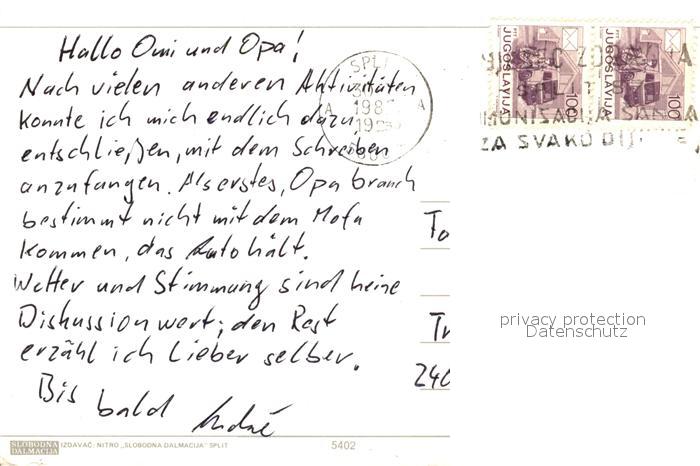 Hallo Omi und Opa!
Nach vielen anderen Aktivitäten
konnte ich mich endlich dazu
entschließen, mit dem Schreiben
anzufangen. Als erstes, Opa brauch
bestimmt nicht mit dem Mofa
kommen, das Auto hält.
Wetter und Stimmung sind keine
Diskussion wert; den Rest
erzähl ich lieber selber.
Bis
bald André
SPLIT
PTT JUGOSLAVIJA 100
PTT JUGOSLAVIJA 100
ZA SVAKO
To
Tr
240
privacy protection
Datenschutz
SLOBODNA
DALMACIJA
IZDAVAČ: NITRO „SLOBODNA DALMACIJA" SPLIT
5402